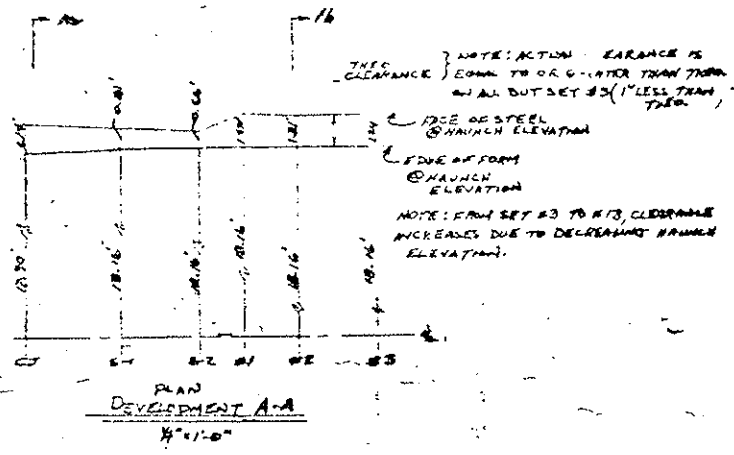 16
THEO
CLEARANCE
NOTE: ACTUAL EARANCE IS
EQUAL TO OR G ATER THAN THEO
ON ALL BUT SET #3 (1" LESS THAN
THEO
0.81'
0.66'
EDGE OF STEEL
@ HAUNCH ELEVATION
EDGE OF FORM
@ HAUNCH
ELEVATION
NOTE: FROM SET #3 TO #13, CLEARANCE
INCREASES DUE TO DECREASING HAUNCH
ELEVATION.
18.16'
18.16'
18.16'
18.16'
18.16'
CJ
S-1
S-2
#1
#2
#3
PLAN
DEVELOPMENT A-A
1/4" = 1'-0"